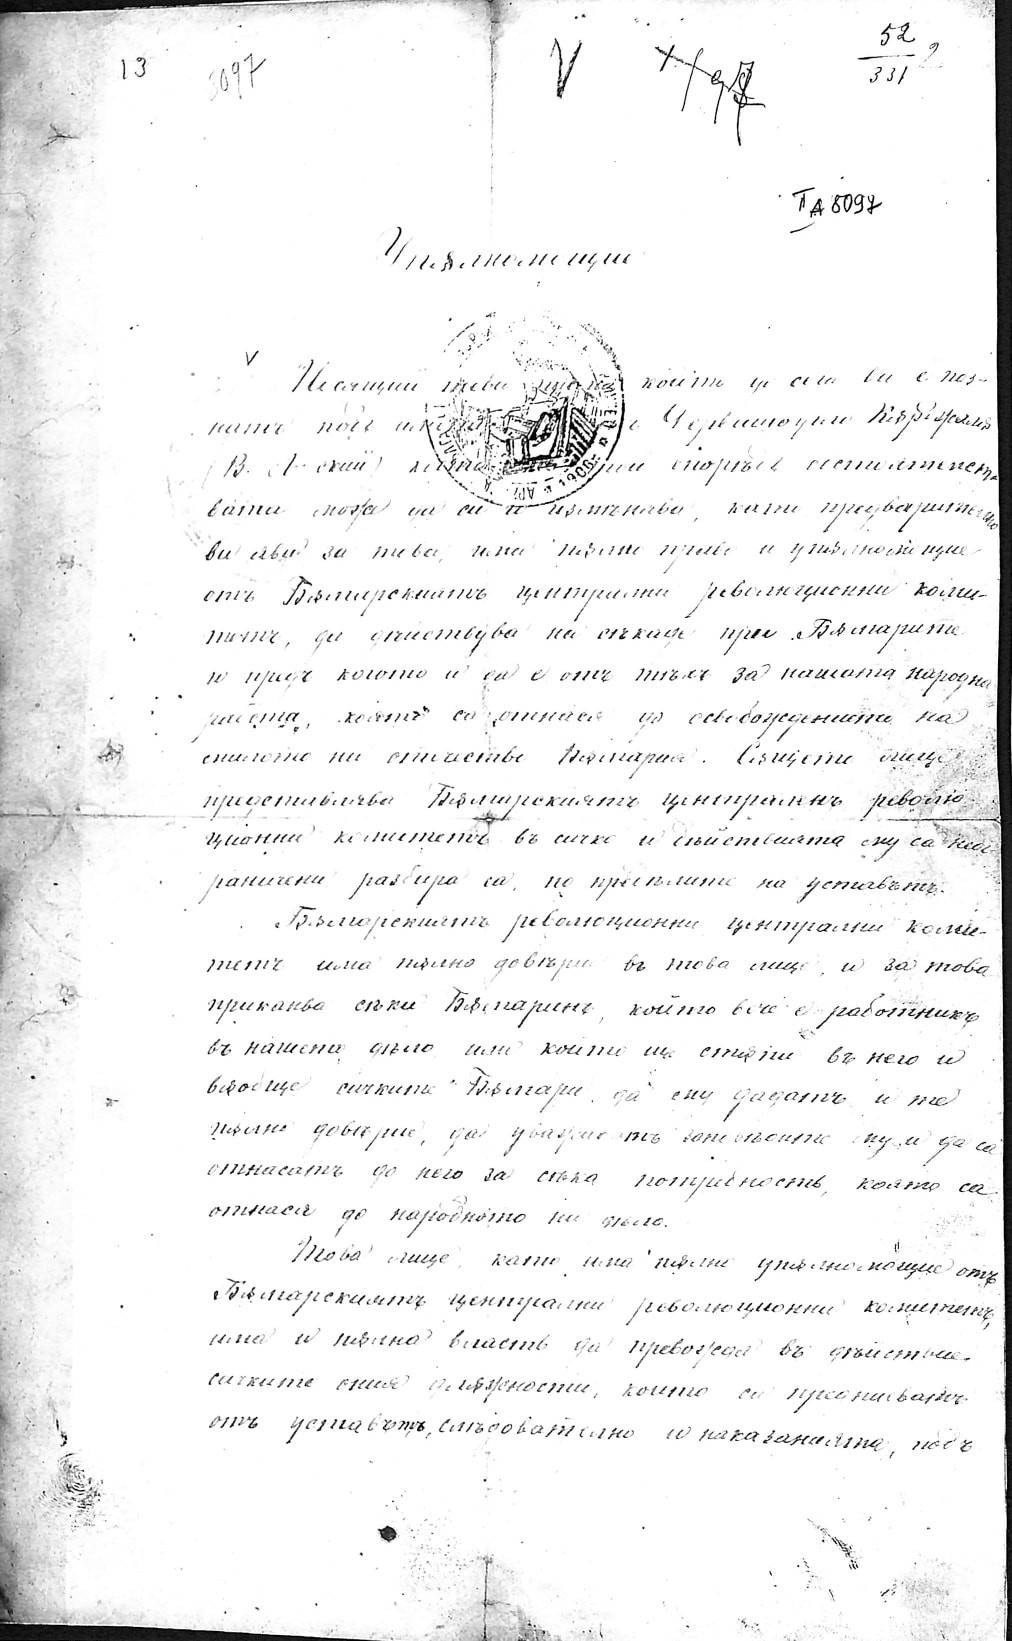 13
5097
V
52
331
2
II A 8097
Упѫлномощие
V
Носящий това който до сега ви е поз-
натъ подъ Червенодимъ Кѫрджала
(В. Лѣский) който споредъ обстоятелст-
вата може да си и измѣнява, като предварително
ви яви за това, има пѫлно право и упѫлномощие
отъ Бѫлгарскиятъ централни революционни коми-
тетъ, да дѣйствува на сѣкадѣ при Бѫлгарите
и предъ когото и да е отъ тѣхъ за нашата народна
работа, която са относя до освобождението на
милото ни отечество Бѫлгария. Сѫщото лице
представлява Бѫлгарскиятъ централенъ револю-
ционни комитетъ въ сичко и дѣйствията му са неог-
раничени разбира са, по прѣдѣлите на уставътъ.
Бѫлгарскиятъ революционни централни коми-
тетъ има пѫлно довѣрие въ това лице, и за това
приканва сѣки Бѫлгаринъ, който вѣче е работникъ
въ нашето дѣло или който ще стѫпи въ него и
въобще сичките Бѫлгари, да му дадатъ и те
пѫлно довѣрие, да уважаватъ заповѣдите му и да са
отнасатъ до него за сѣка потрѣбность, която са
отнася до народното ни дѣло.
Това лице, като има пѫлно упѫлномощие отъ
Бѫлгарскиятъ централни революционни комитетъ,
има и пѫлна власть да превожда въ дѣйствие
сичките ония длѫжности, които са предписватъ
отъ уставътъ, слѣдователно и наказанията, подъ